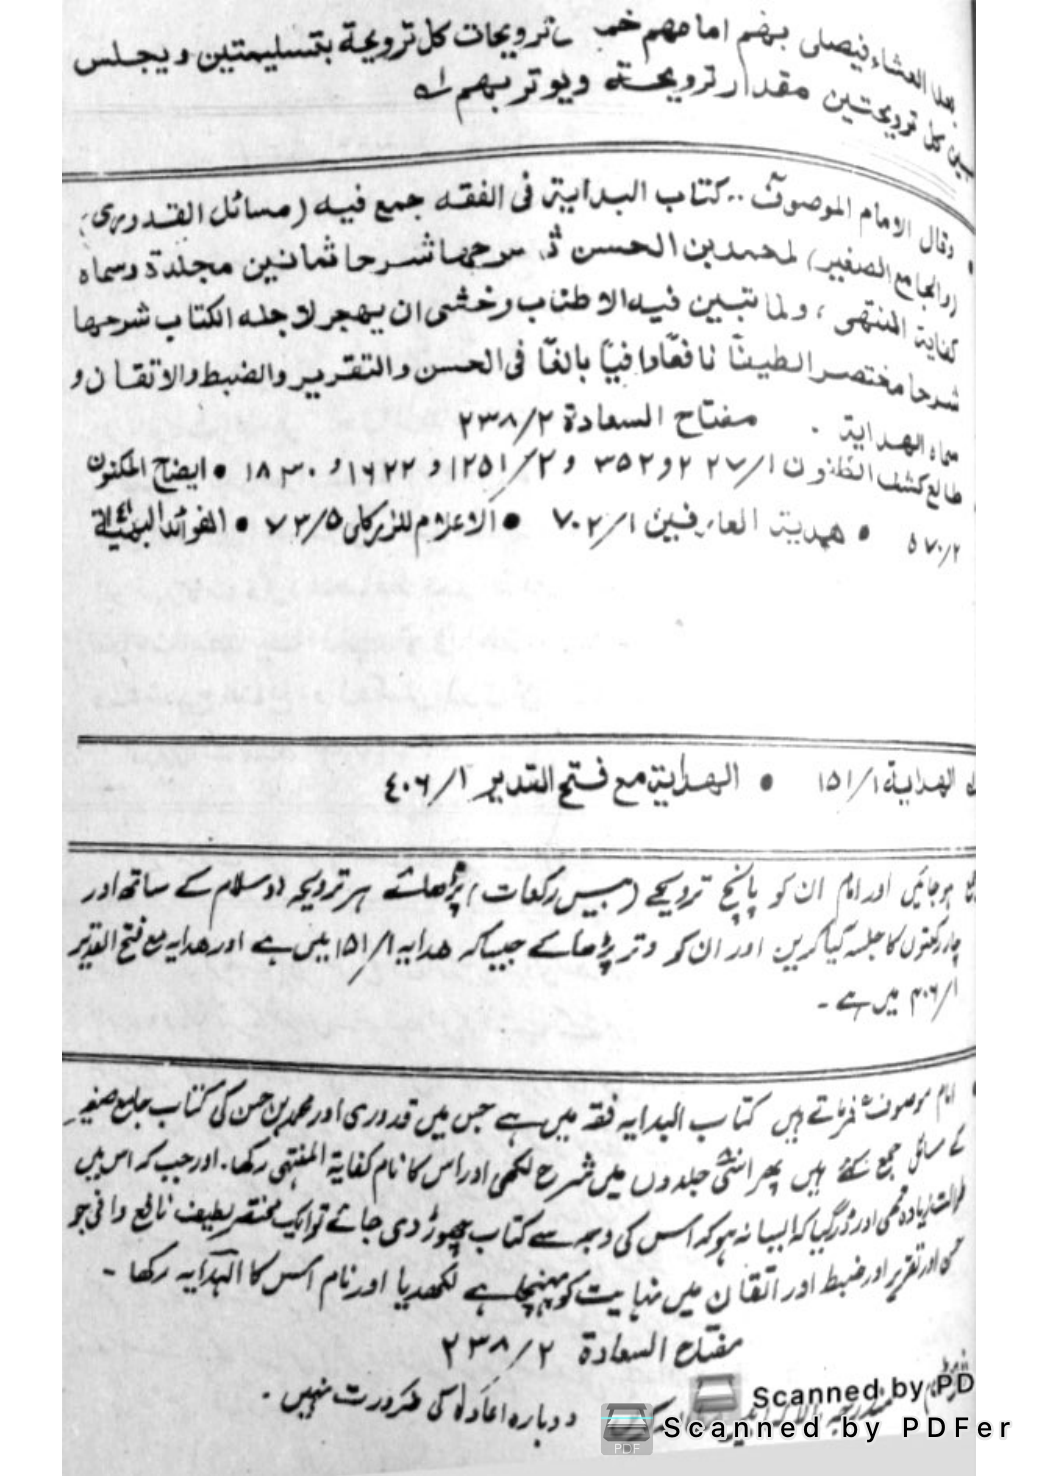 بعد العشاء فيصلى بهم امامهم خمس ترويحات كل ترويحة بتسليمتين ويجلس
بين كل ترويحتين مقدار ترويحته ويوتر بهم له
وقال الامام الموصوف .. كتاب البداية فى الفقه جمع فيه (مسائل القدورى)
(والجامع الصغير) لمحمد بن الحسن ثم شرحها شرحا ثمانين مجلدة وسماه
كفاية المنتهى، ولما تبين فيه الاطناب وخشى ان يهجر لاجله الكتاب شرحها
شرحا مختصر الطيفا نافعا وافيا بالغا فى الحسن والتقرير والضبط والاتقان و
سماه الهداية . مفتاح السعادة ٢/٢٣٨
طالع كشف الظنون ١/٢٢٧ و٣٥٢ و ٢/١٢٥١ و ١٦٢٢ و ١٨٣٠ • ايضاح المكنون
٢/٥٧٠ • هدية العارفين ١/٧٠٢ • الاعلام للزركلى ٥/٧٣ • الفوائد البهية ١٤١
له الهداية ١/١٥١ • الهداية مع فتح القدير ١/٤٠٦
ہوجائیں اور امام ان کو پانچ ترویحے (بیس رکعات) پڑھائے ہر ترویحہ دو سلام کے ساتھ اور
چار رکعتوں کا جلسہ کیا کریں اور ان کو وتر پڑھا کے جیسا کہ ھدایہ ۱/۱۵۱ میں ہے اور ھدایہ مع فتح القدیر
۱/۴۰۶ میں ہے ۔
امام موصوف فرماتے ہیں کتاب البدایہ فقہ میں ہے جس میں قدوری اور محمد بن حسن کی کتاب جامع صغیر
کے مسائل جمع کئے ہیں پھر اسّی جلدوں میں شرح لکھی اور اس کا نام کفایۃ المنتہی رکھا۔ اور جب کہ اس میں
طوالت زیادہ تھی اور ڈر گیا کہ ایسا نہ ہو کہ اس کی وجہ سے کتاب چھوڑ دی جائے تو ایک مختصر لطیف نافع وافی جو
حسن اور تقریر اور ضبط اور اتقان میں نہایت کو پہنچا ہے لکھدیا اور نام اس کا الہدایہ رکھا ۔
مفتاح السعادة ٢/٢٣٨
دوبارہ اعادہ کی ضرورت نہیں ۔
Scanned by PD
Scanned by PDFer
PDF